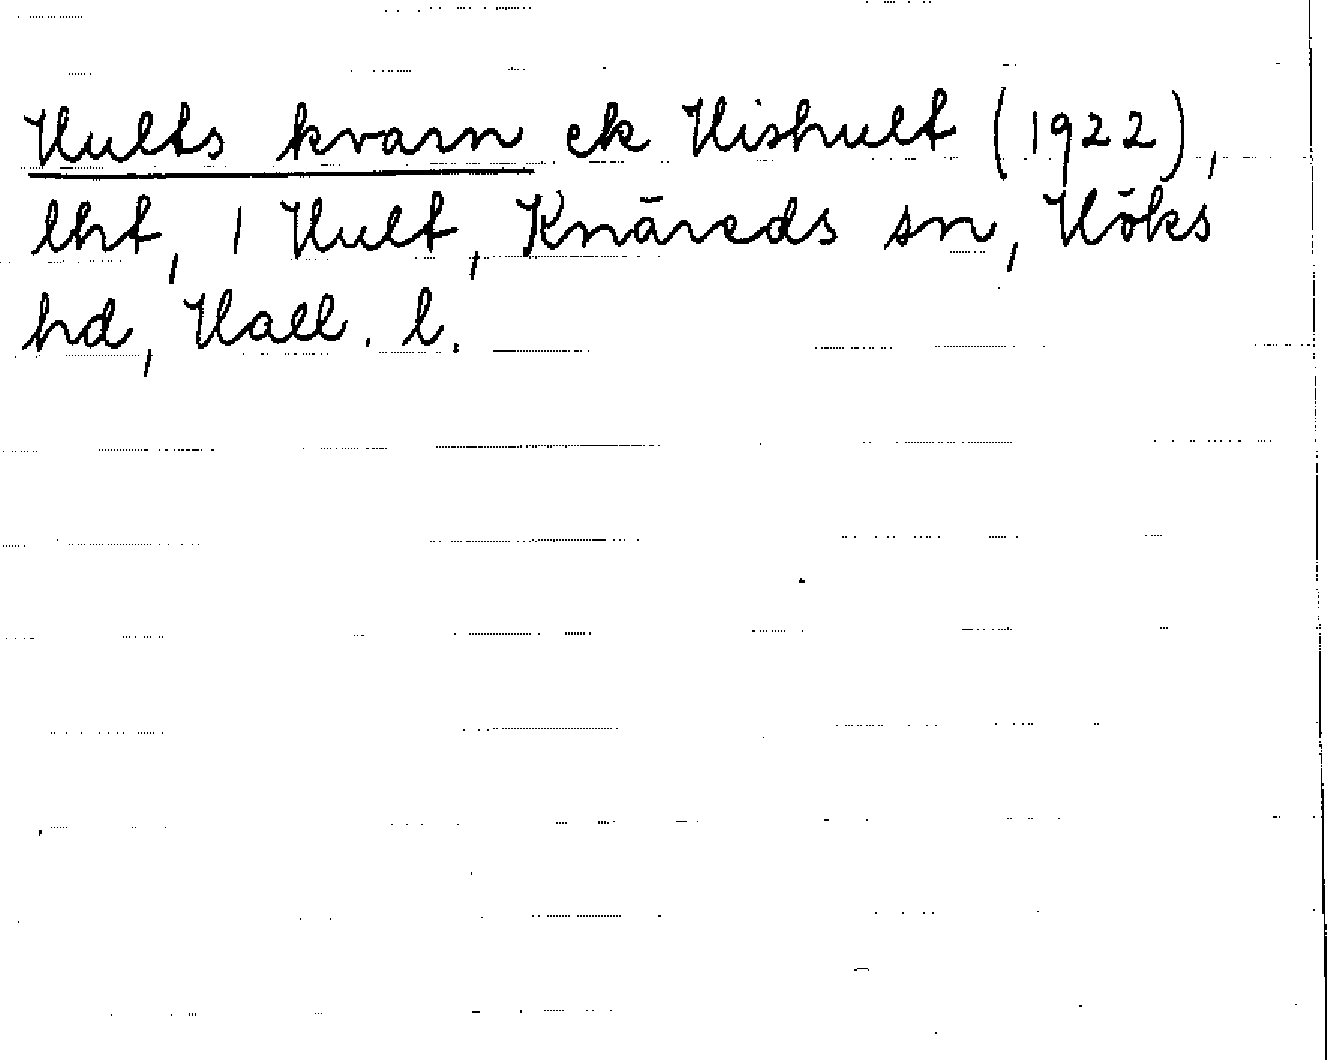 Hults kvarn ek Hishult (1922),
lht, 1 Hult, Knäreds sn, Höks
hd, Hall. l.